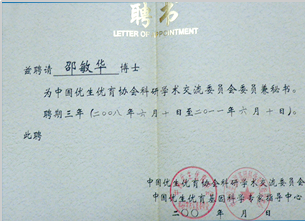 聘书
LETTER OF APPOINTMENT
兹聘请 邵敏华 博士
为中国优生优育协会科研学术交流委员会委员兼秘书。
聘期三年（二〇〇八年六月十日至二〇一一年六月十日）。
此聘
中国优生优育协会科研学术交流委员会
中国优生优育基因科学专家指导中心
二〇〇 年 月 日